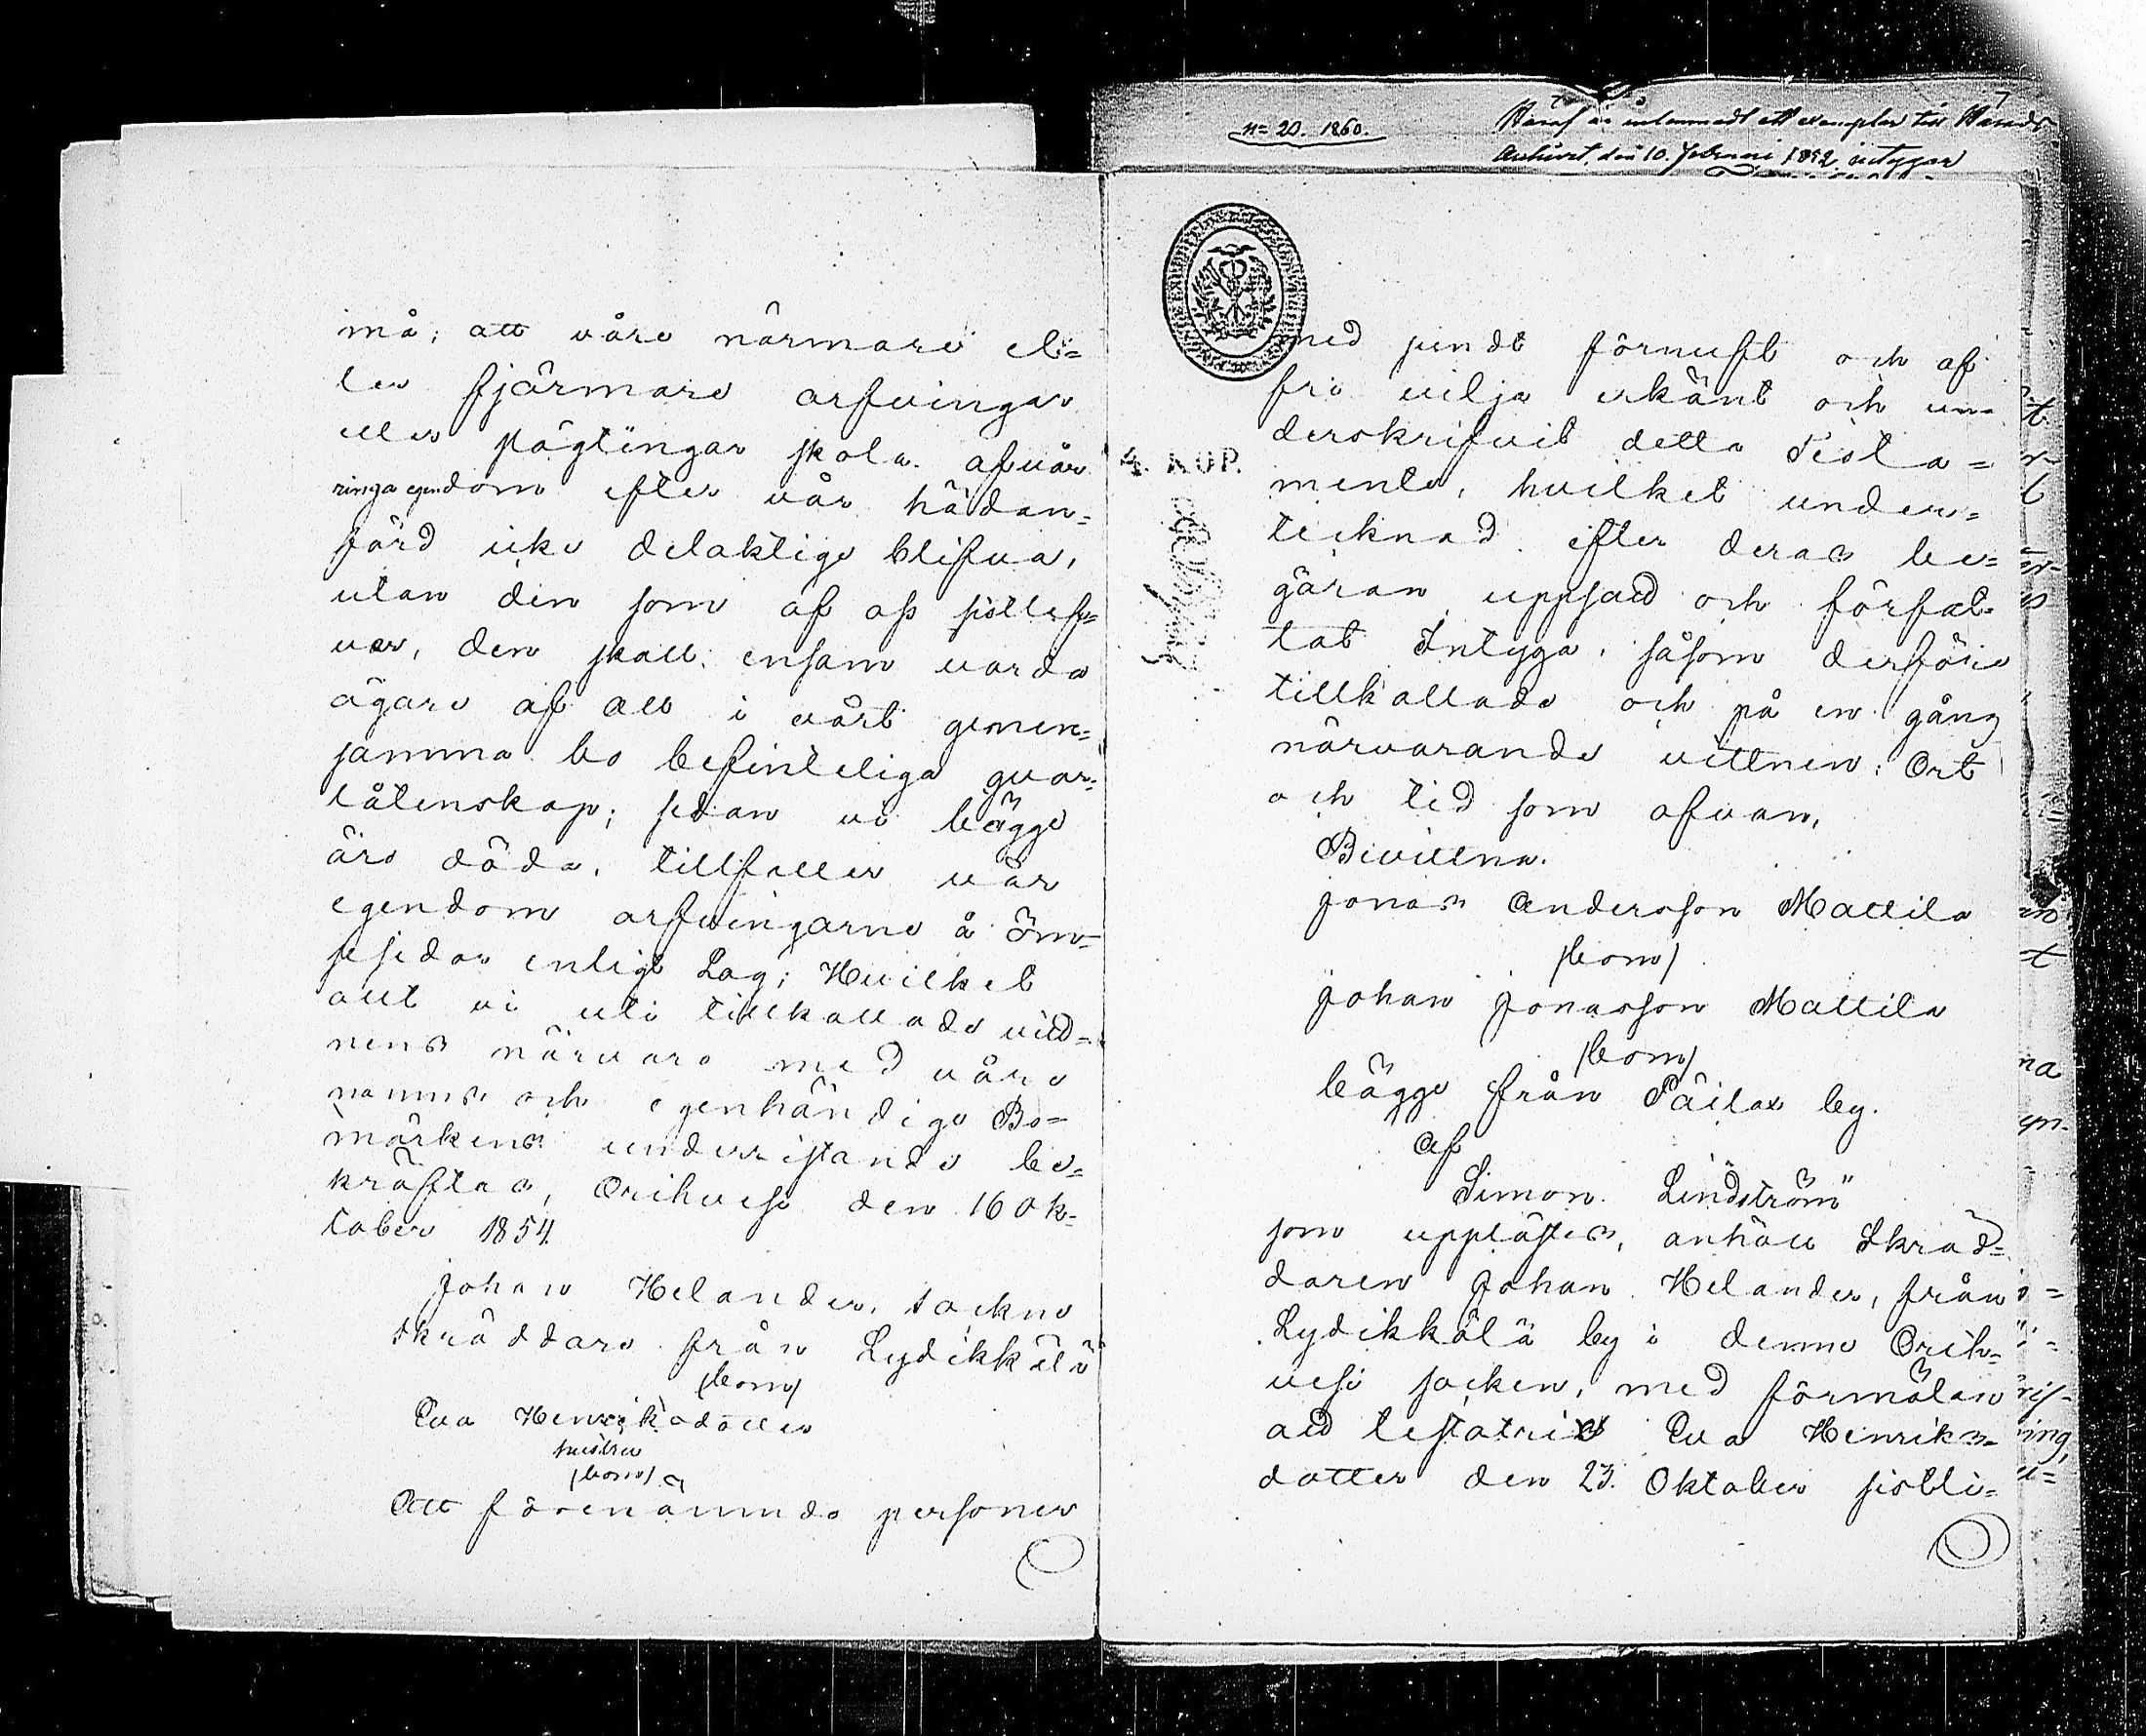 må; att våre närmare el=
ler fjärmare arfvingar
eller slägtingar skola af vår
ringa egendom efter vår hädan=
färd icke delaktige blifva,
utan den som af oss sistlef=
ver, den skall ensam varda
ägare af all i vårt gemen=
samma bo befinteliga qvar=
låtenskap; sedan vi bägge
äro döda, tillfaller vår
egendom arfvingarne å öm=
se sidor enligt Lag; Hvilket
allt vi uti tillkallade vitt=
nens närvaro med våre
namns och egenhändige Bo=
märkens underristande be=
kräftas, Orihvesi den 16 Ok=
tober 1854.
Johan Helander, sockne
skräddare från Lydikkälä
(bom)
Eva Henriksdotter
hustru
(bom)
Att förenämnde personer
N= 20. 1860.
Häraf är inlemnadt ett exemplar till Härads
Arkivet, den 10. Februari 1892, intygar
4. KOP.
med sundt förnuft och af
fri vilja erkänt och un=
derskrifvit detta Testa=
mente, hvilket under=
tecknad efter deras be=
gäran uppsatt och författ=
tat Intyga, såsom derföre
tillkallade och på en gång
närvarande vittnen; Ort
och tid som ofvan,
Bevittna.
Jonas Andersson Mattila
(bom)
Johan Jonasson Mattila
(bom)
bägge från Päilax by.
Af
Simon Lindström"
som upplästes, anhöll Skräd=
daren Johan Helander, från
Lydikkälä by i denne Orih=
vesi socken, med förmälan
att testatrix Eva Henriks=
dotter den 23. Oktober sistli=